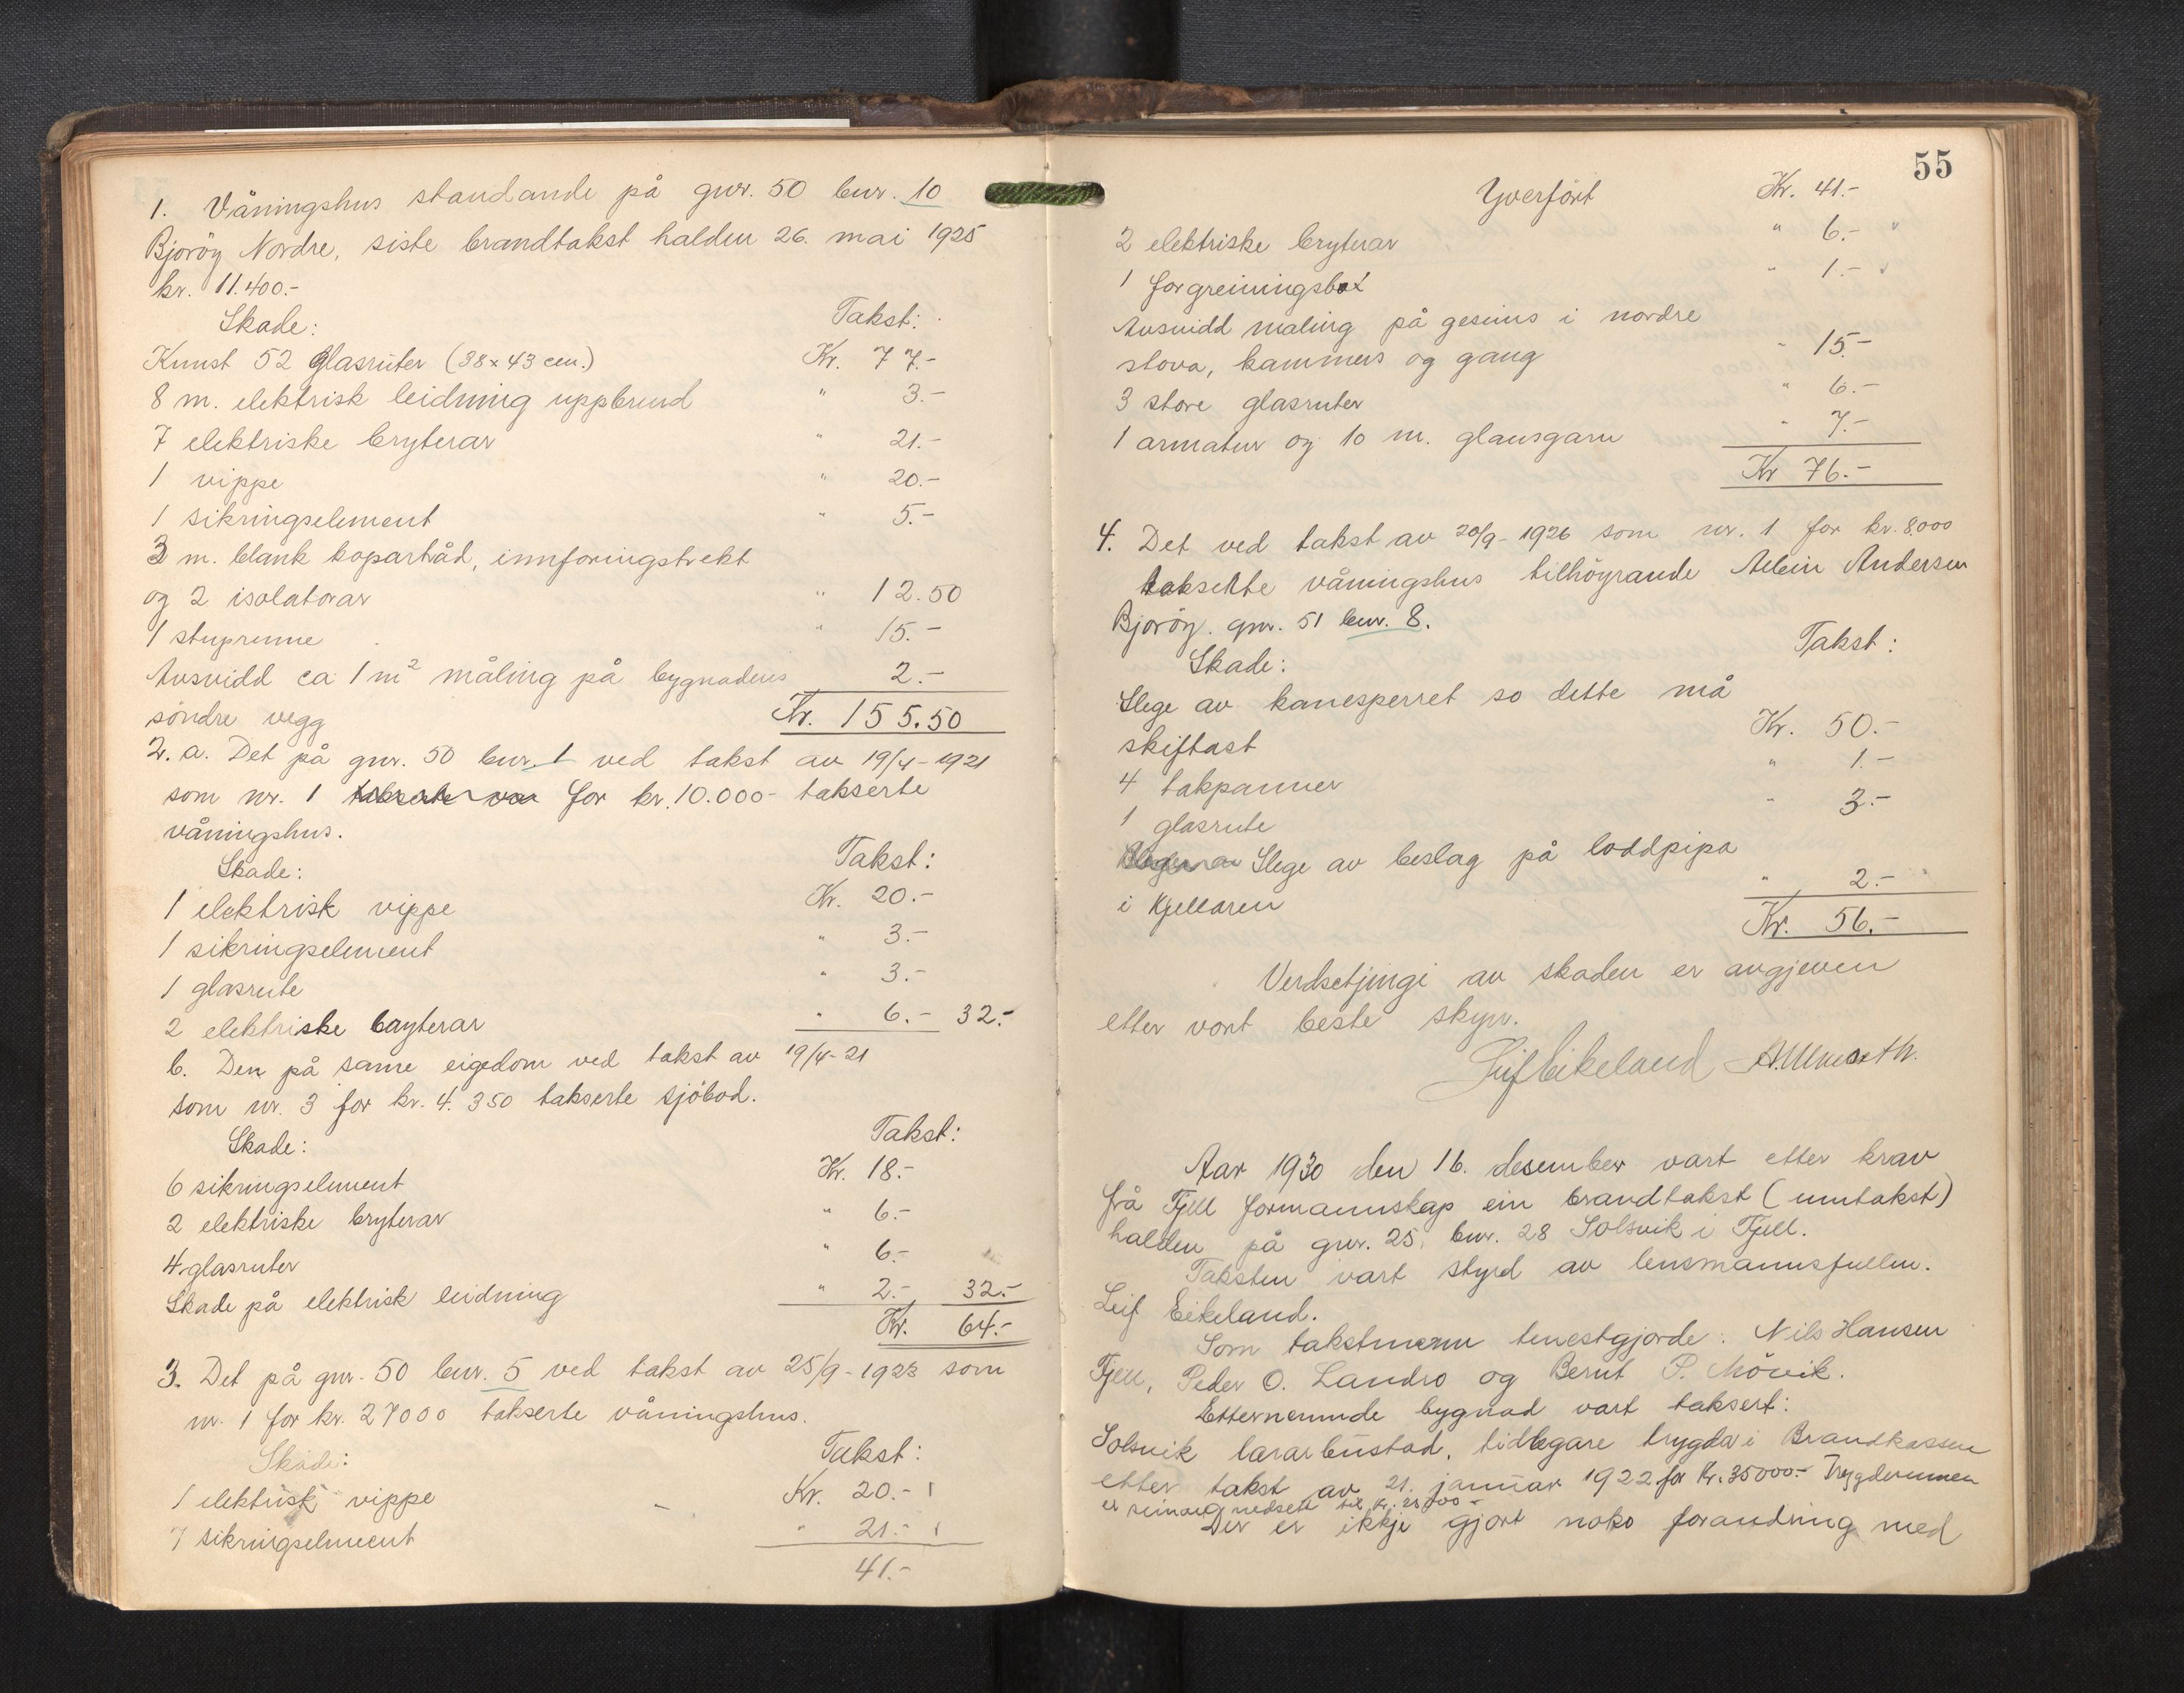 1. Våningshus standande på gnr. 50 bnr. 10
Bjoröy Nordre, siste brandtakst halden 26. mai 1925
kr. 11.400.-
Skade: Takst:
Knust 52 glasruter (38 x 43 cm.) Kr. 77.-
8 m. elektrisk leidning uppbrend " 3.-
7 elektriske brytarar " 21.-
1 vippe " 20.-
1 sikringselement " 5.-
3 m. blank kopartråd, innforingstrekt
og 2 isolatorar " 12.50
1 stuprenne " 15.-
Avsvidd ca 1 m² måling på bygnadens 2.-
söndre vegg Kr. 155.50
2. a. Det på gnr. 50 bnr. 1 ved takst av 19/4-1921
som nr. 1 for kr. 10.000- takserte
våningshus.
Skade: Takst:
1 elektrisk vippe Kr. 20.-
1 sikringselement " 3.-
1 glasrute " 3.-
2 elektriske brytarar " 6.- 32.-
b. Den på same eigedom ved takst av 19/4-21
som nr. 3 for kr. 4.350 takserte sjöbod.
Skade: Takst:
6 sikringselement Kr. 18.-
2 elektriske brytarar " 6.-
4 glasruter " 6.-
Skade på elektrisk leidning " 2.- 32.-
Kr. 64.-
3. Det på gnr. 50 bnr. 5 ved takst av 25/9-1923 som
nr. 1 for kr. 27000 takserte våningshus.
Skade: Takst:
1 elektrisk vippe Kr. 20.-
7 sikringselement " 21.-
41.-
55
Yverfört Kr. 41.-
2 elektriske brytarar " 6.-
1 forgreiningsbox " 1.-
Avsvidd maling på gesims i nordre
stova, kammers og gang " 15.-
3 store glasruter " 6.-
1 armatur og 10 m. glansgarn " 7.-
Kr 76.-
4. Det ved takst av 20/9-1926 som nr. 1 for kr. 8000
taksette våningshus tilhöyrande Albin Andersen
Bjoröy. gnr. 51 bnr. 8.
Skade: Takst:
Slege av kanesperret so dette må
skiftast Kr. 50.-
4 takpanner " 1.-
1 glasrute " 3.-
Slege av beslag på loddpipa
i kjellaren " 2.-
Kr. 56.-
Verdsetjingi av skaden er avgjeven
etter vort beste skyn.
Leif Eikeland
Aar 1930 den 16. desember vart etter krav
frå Fjell formannskap ein brandtakst (umtakst)
halden på gnr. 25, bnr. 28 Solsvik i Fjell.
Taksten vart styrd av lensmannsfullm.
Leif Eikeland.
Som takstmenn tenestgjorde: Nils Hansen
Fjell, Peder O. Landro og Bernt P. Mövik.
Etternemnde bygnad vart taksert:
Solsvik lærarbustad, tidlegare trygda i Brandkassen
etter takst av 21. januar 1922 for Kr. 35000.- Trygdesummen
er seinare nedsett til kr.
Der er ikkje gjort noko forandring med